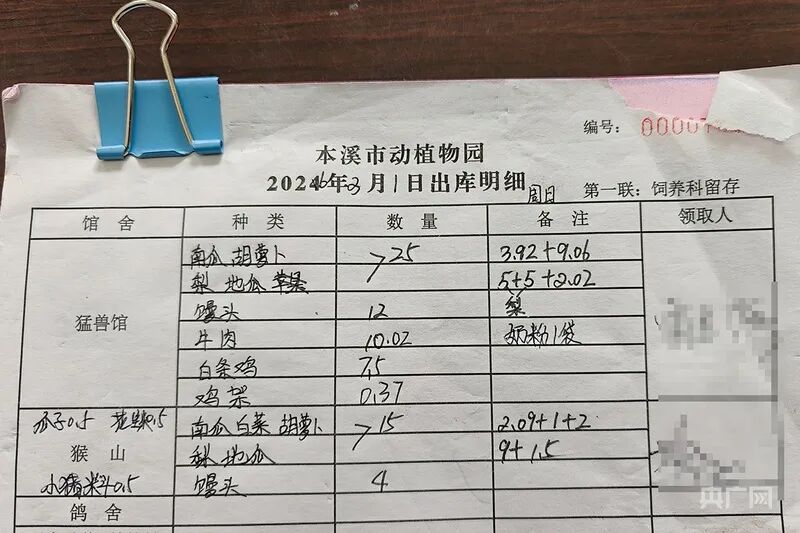 编号: 00007
本溪市动植物园
2026年3月1日出库明细 周日 第一联: 饲养科留存
馆舍 种类 数量 备注 领取人
南瓜 胡萝卜 >25 3.92+9.06
梨 地瓜 苹果 5+5+2.02
猛兽馆 馒头 12 梨
牛肉 10.02 奶粉1袋
白条鸡 7.5
鸡架 0.37
瓜子0.5 0.5 南瓜 白菜 胡萝卜 >15 2.09+1+2
猴山 梨 地瓜 9+1.5
小猪料0.5 馒头 4
鸽舍
央广网